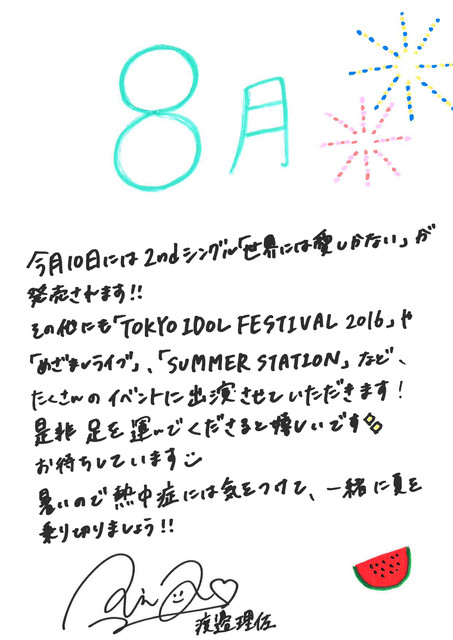 8月
今月10日には2ndシングル「世界には愛しかない」が
発売されます!!
その他にも「TOKYO IDOL FESTIVAL 2016」や
「めざましライブ」、「SUMMER STATION」など、
たくさんのイベントに出演させていただきます!
是非足を運んでくださると嬉しいです
お待ちしています
暑いので熱中症には気をつけて、一緒に夏を
乗り切りましょう!!
渡邉理佐